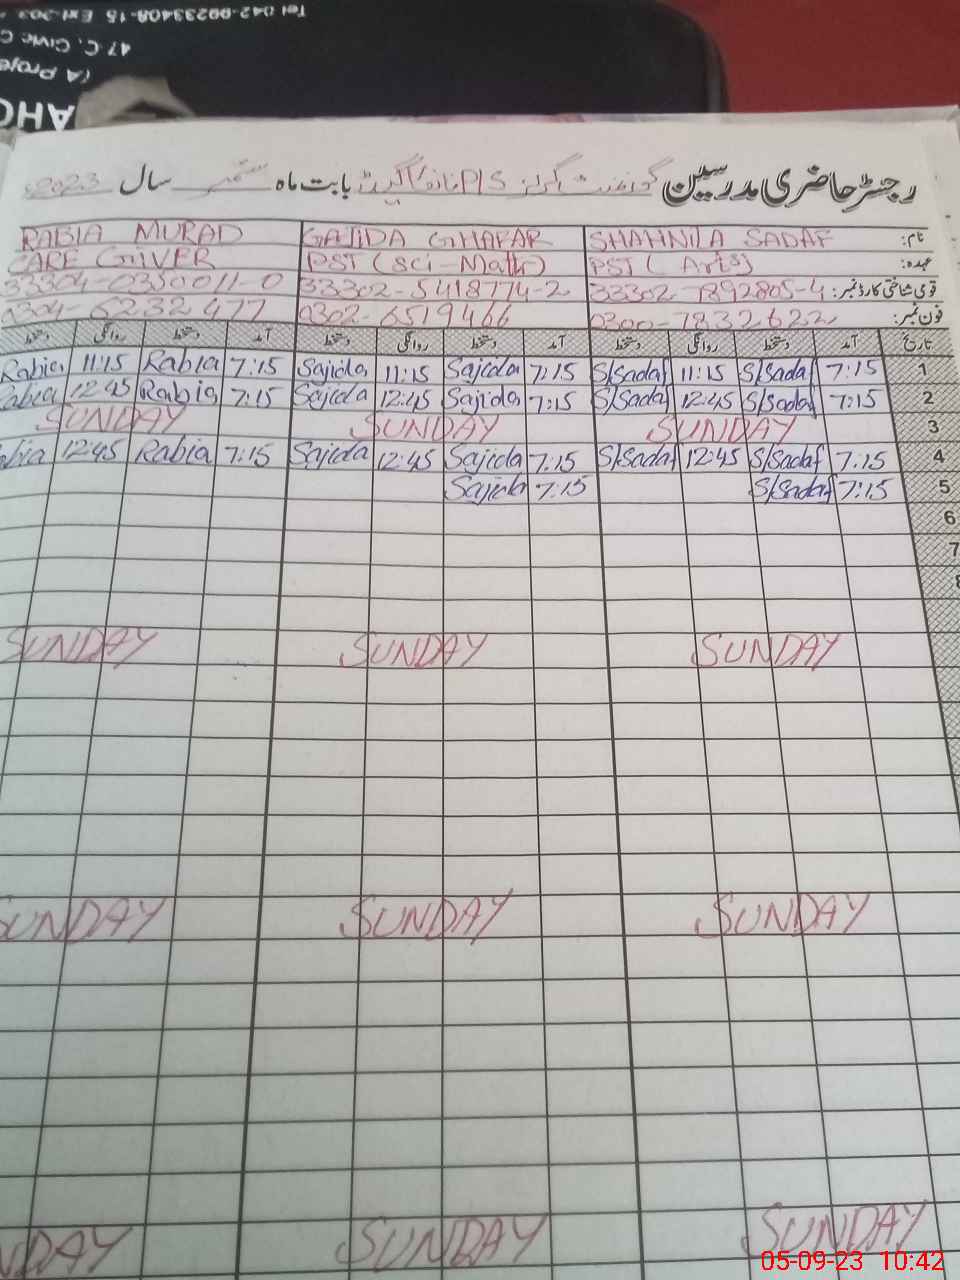 Tel 042-99233408-15 Ext-303
47 C, Civic C
(A Proje
AHC
رجسٹر حاضری مدرسین گورنمنٹ گرلز P/S بابت ماہ ستمبر سال 2023
نام: SHAHNILA SADAF SAJIDA GHAFAR RABIA MURAD
عہدہ: PST ( Arts) PST (Sci-Math) CARE GIIVER
قومی شناختی کارڈ نمبر: 33302-7892805-4 33302-5418774-2 33304-0350011-0
فون نمبر: 0300-7832622 0302-6519466 0304-6232477
تاریخ آمد دستخط روانگی دستخط آمد دستخط روانگی دستخط آمد دستخط روانگی دستخط
1 7:15 S/Sadaf 11:15 S/Sadaf 7:15 Sajida 11:15 Sajida 7:15 Rabia 11:15 Rabia
2 7:15 S/Sadaf 12:45 S/Sadaf 7:15 Sajida 12:45 Sajida 7:15 Rabia 12:45 Rabia
3 SUNDAY SUNDAY SUNDAY
4 7:15 S/Sadaf 12:45 S/Sadaf 7:15 Sajida 12:45 Sajida 7:15 Rabia 12:45 Rabia
5 7:15 S/Sadaf 7:15 Sajida
6
7
8
SUNDAY SUNDAY SUNDAY
SUNDAY SUNDAY SUNDAY
SUNDAY SUNDAY NDAY
05-09-23 10:42